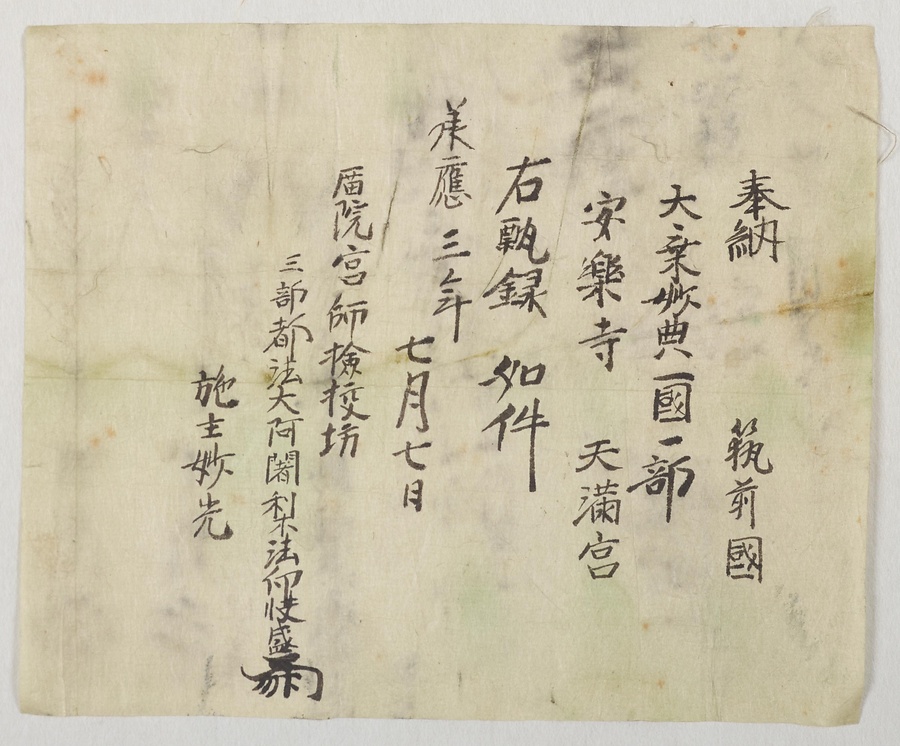 奉納 筑前國
大乗妙典一國一部
安樂寺 天滿宮
右執録 如件
承應三年
七月七日
留院宮師檢校坊
三部都法大阿闍梨法印快盛
施主妙光